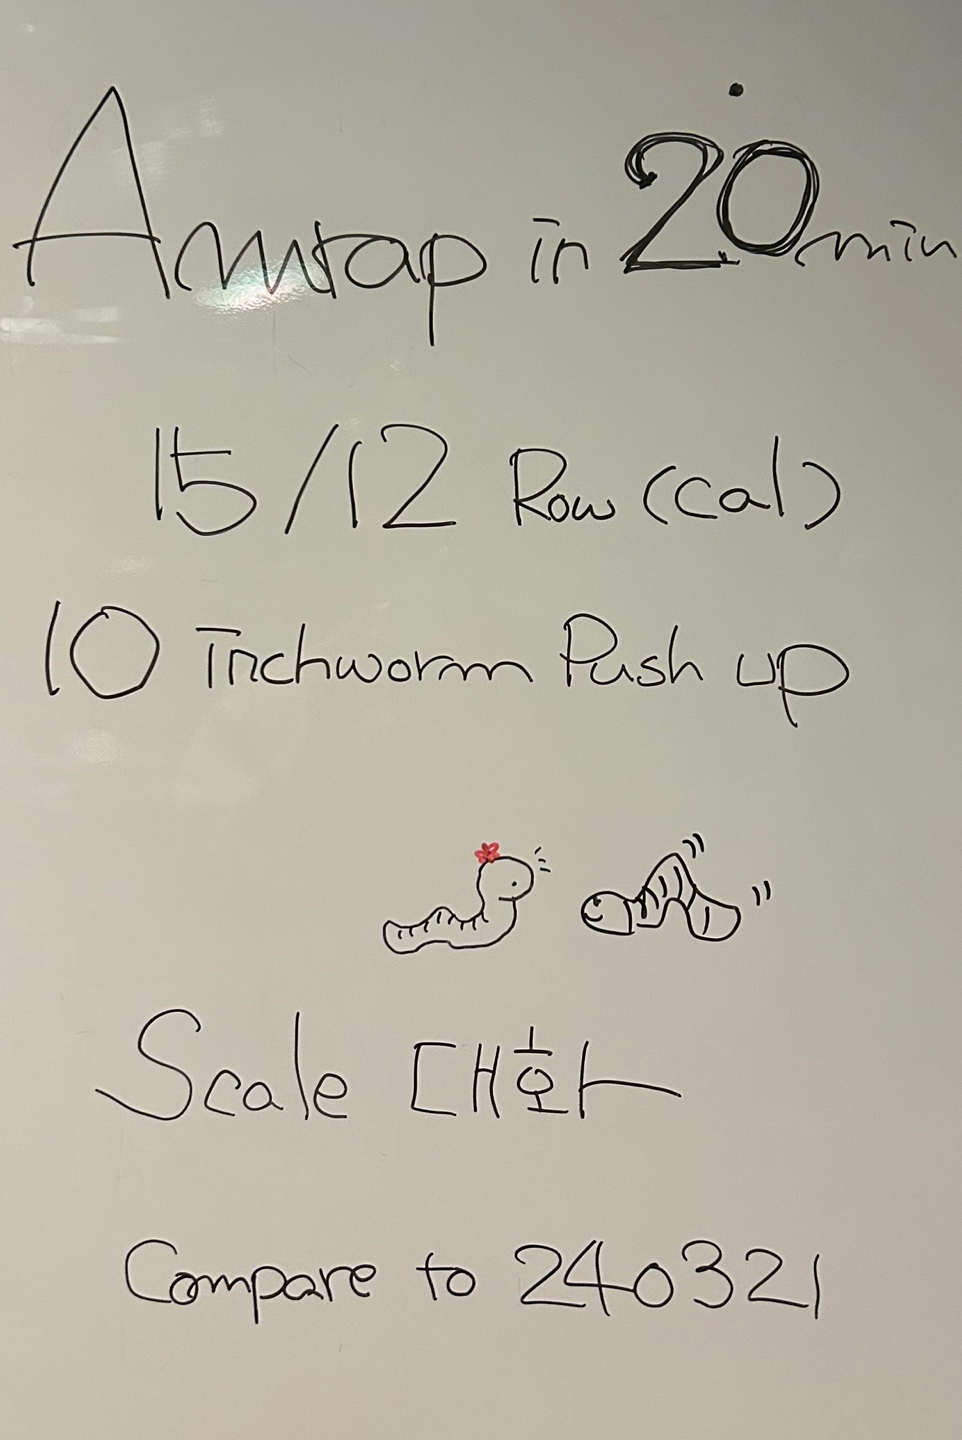 Amrap in 20 min
15/12 Row (cal)
10 Inchworm Push up
Scale 대화
Compare to 240321